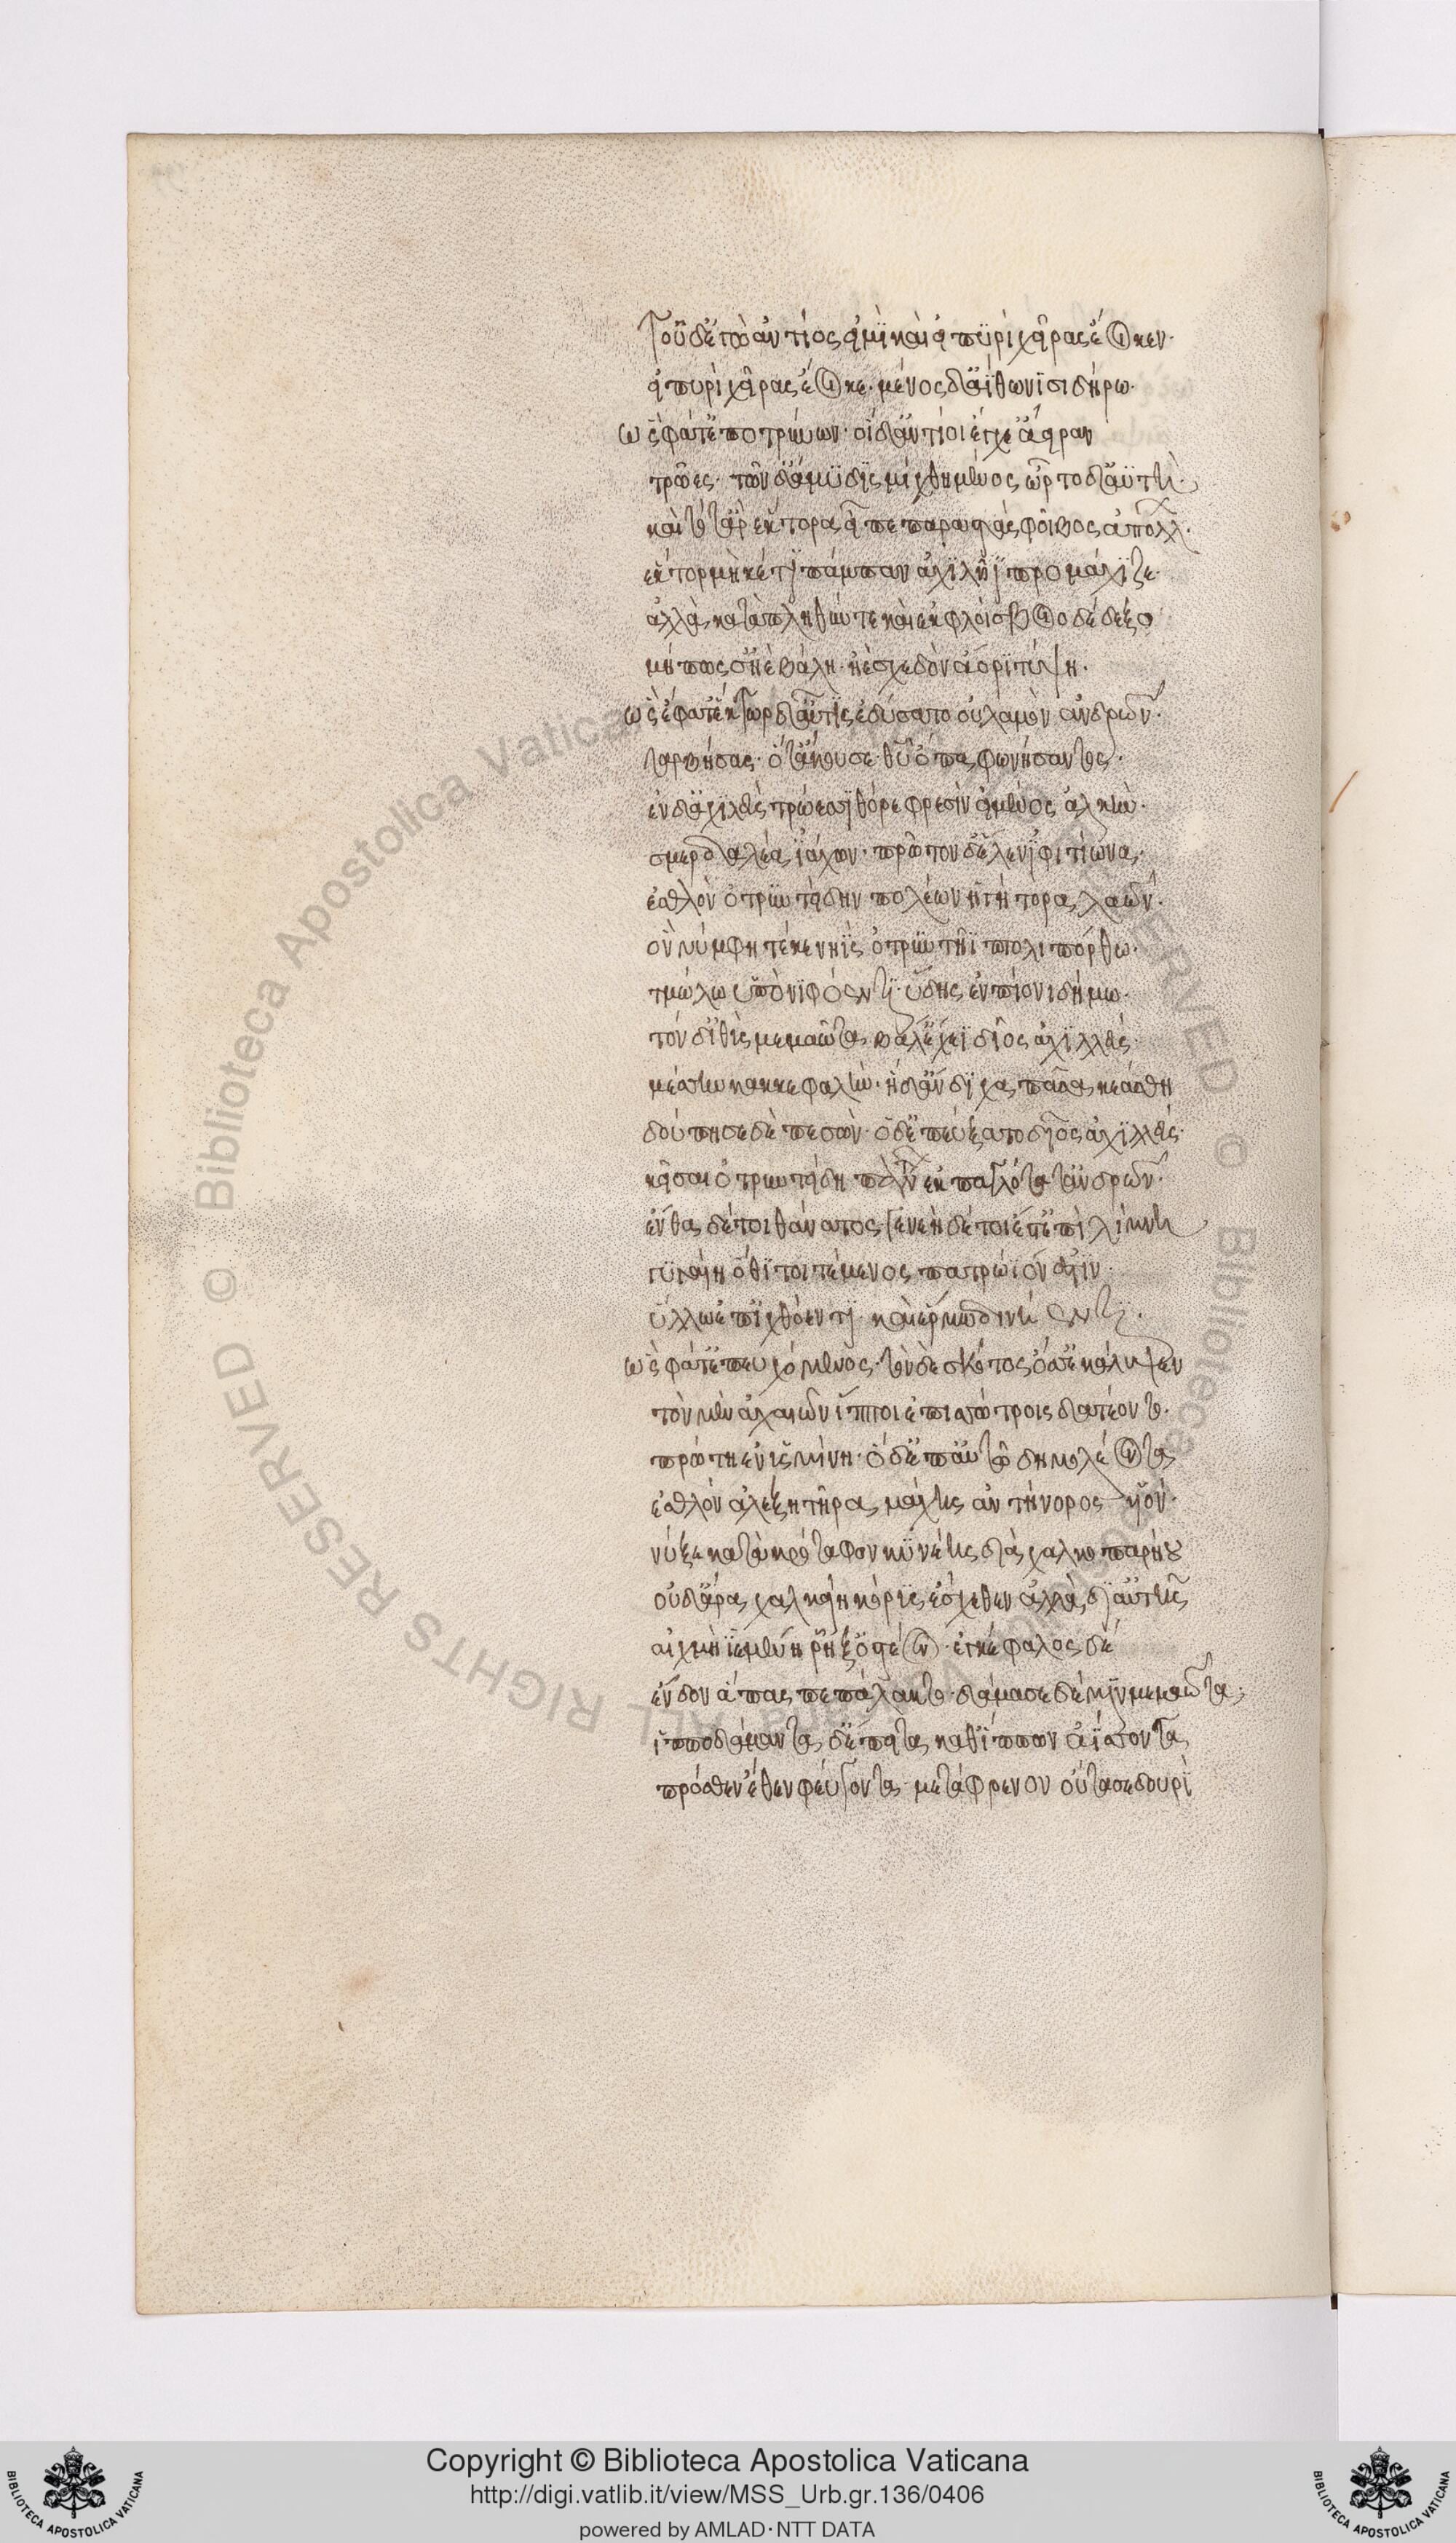 τοῦ δ' ἐγὼ ἀντίος εἶμι καὶ εἰ πυρὶ χεῖρας ἔοικεν·
εἰ πυρὶ χεῖρας ἔοικε· μένος δ' αἴθωνι σιδήρω·
ὣς φάτ' ἐποτρύνων· οἱ δ' ἀντίοι ἔγχε' ἄειραν
τρῶες· τῶν δ' ἄμυδις μίχθη μένος, ὦρτο δ' ἀϋτή·
καὶ τότ' ἄρ' ἕκτορα εἶπε παραστὰς φοῖβος ἀπόλλ·
ἕκτορ μηκέτι πάμπαν ἀχιλῆϊ προμάχιζε·
ἀλλὰ κατὰ πληθύν τε καὶ ἐκ φλοίσβοιο δέδεξο
μή πως σ' ἠὲ βάλη· ἠὲ σχεδὸν ἄορι τύψη·
ὣς ἔφαθ' ἕκτωρ δ' αὖτις ἐδύσατο οὐλαμὸν ἀνδρῶν·
ταρβήσας· ὅτ' ἄκουσε θεοῦ ὄπα φωνήσαντος·
ἐν δ' ἀχιλεὺς τρώεσσι θόρε φρεσὶν εἱμένος ἀλκὴν·
σμερδαλέα ἰάχων· πρῶτον δ' ἕλεν ἰφιτίωνα·
ἐσθλὸν ὀτρυντείδην πολέων ἡγήτορα λαῶν·
ὃν νύμφη τέκε νηῒς ὀτρυντῆϊ πτολιπόρθω·
τμώλω ὕπο νιφόεντι· ὕδης ἐν πίονι δήμω·
τὸν δ' ἰθὺς μεμαῶτα βάλ' ἔγχεϊ δῖος ἀχιλλεὺς·
μέσσην κακκεφαλὴν· ἡ δ' ἄνδιχα πᾶσα κεάσθη
δούπησε δὲ πεσών· ὁ δ' ἐπεύξατο δῖος ἀχιλλεύς·
κεῖσαι ὀτρυντείδη πάντων ἐκπαγλότατ' ἀνδρῶν·
ἐνθάδε τοι θάνατος· γενεὴ δέ τοι ἐστ' ἐπὶ λίμνη
γυγαίη ὅθι τοι τέμενος πατρώϊόν ἐστιν·
ὕλλω ἐπ' ἰχθυόεντι· καὶ ἕρμω δινήεντι·
ὣς φάτ' ἐπευχόμενος· τὸν δὲ σκότος ὄσσε κάλυψεν
τὸν μὲν ἀχαιῶν ἵπποι ἐπισσώτροις δατέοντο·
πρώτη ἐν ὑσμίνη· ὁ δ' ἐπ' αὐτῶ δημολέοντα
ἐσθλὸν ἀλεξητῆρα μάχης ἀντήνορος υἱόν·
νύξε κατὰ κρόταφον κυνέης διὰ χαλκοπαρήου
οὐδ' ἄρα χαλκείη κόρυς ἔσχεθεν ἀλλὰ δι' αὐτῆς
αἰχμὴ ἱεμένη ῥῆξ' ὀστέον· ἐγκέφαλος δὲ
ἔνδον ἅπας πεπάλακτο· δάμασε δέ μιν μεμαῶτα·
ἱπποδάμαντα δ' ἔπειτα καθ' ἵππων ἀΐσσοντα
πρόσθεν ἕθεν φεύγοντα μετάφρενον οὔτασε δουρὶ
Copyright © Biblioteca Apostolica Vaticana
http://digi.vatlib.it/view/MSS_Urb.gr.136/0406
powered by AMLAD·NTT DATA